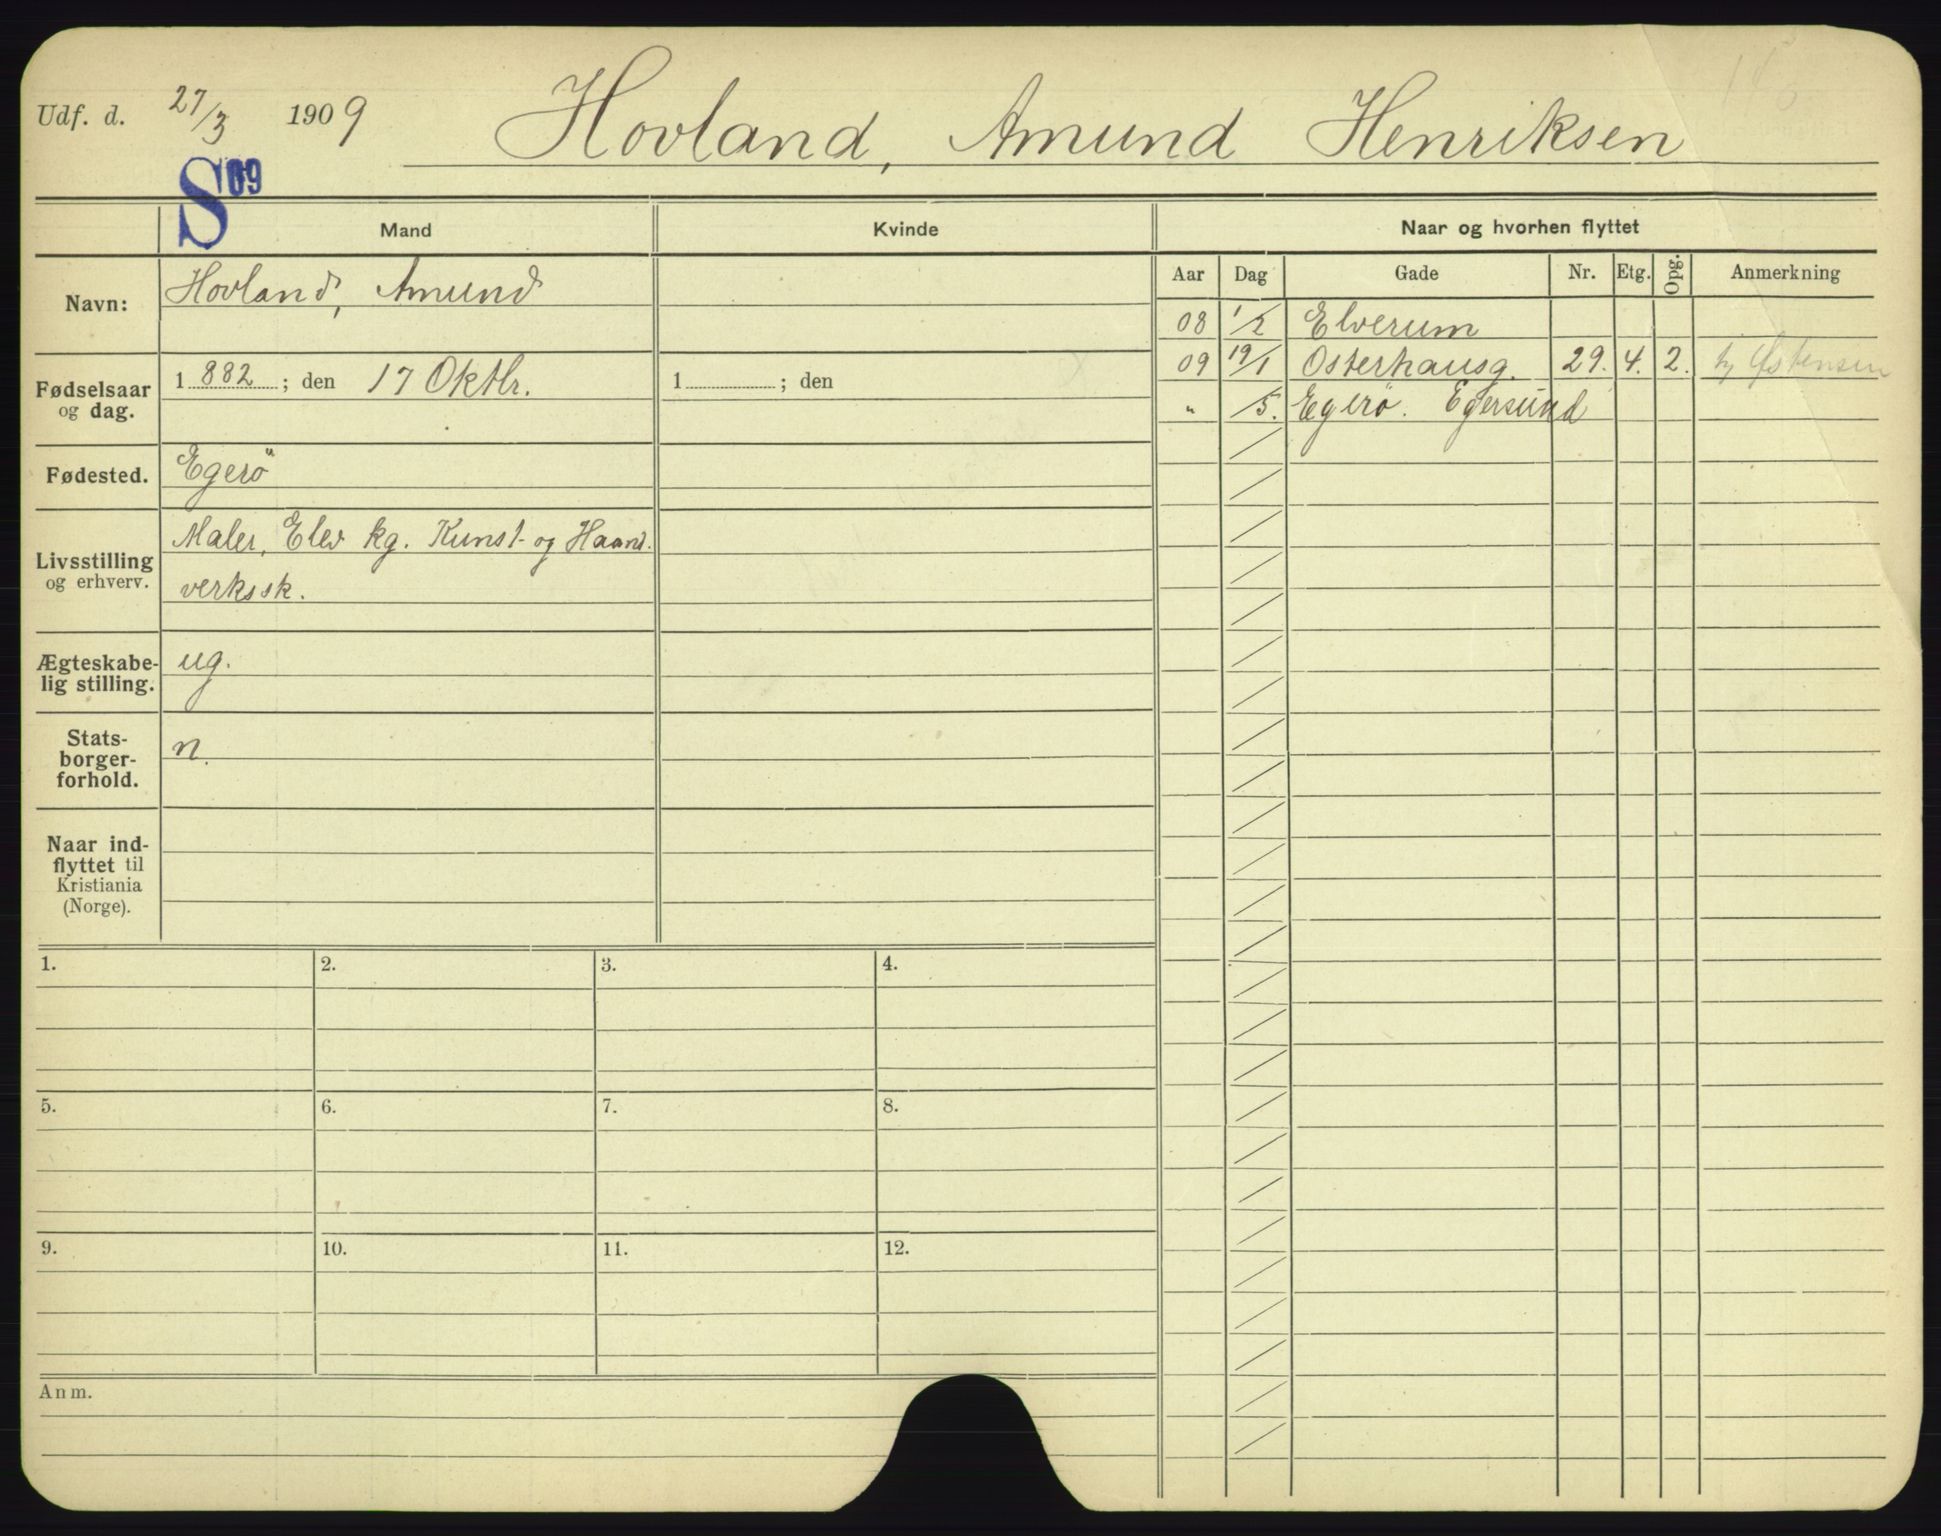 Udf. d. 27/3 1909 Hovland, Amund Henriksen
S 09
Mand Kvinde Naar og hvorhen flyttet
Aar Dag Gade Nr. Etg. Opg. Anmerkning
Navn: Hovland, Amund
08 1/2 Elverum
09 19/1 Osterhausg. 29. 4. 2. hj Østensen
" /5. Egerö. Egersund
Fødselsaar
og dag.
1882; den 17 Oktbr.
1 ; den
Fødested. Egerö
Livsstilling
og erhverv.
Maler, Elev kg. Kunst- og Haand.
verkssk.
Ægteskabe-
lig stilling.
ug.
Stats-
borger-
forhold.
n.
Naar ind-
flyttet til
Kristiania
(Norge).
1. 2. 3. 4.
5. 6. 7. 8.
9. 10. 11. 12.
Anm.